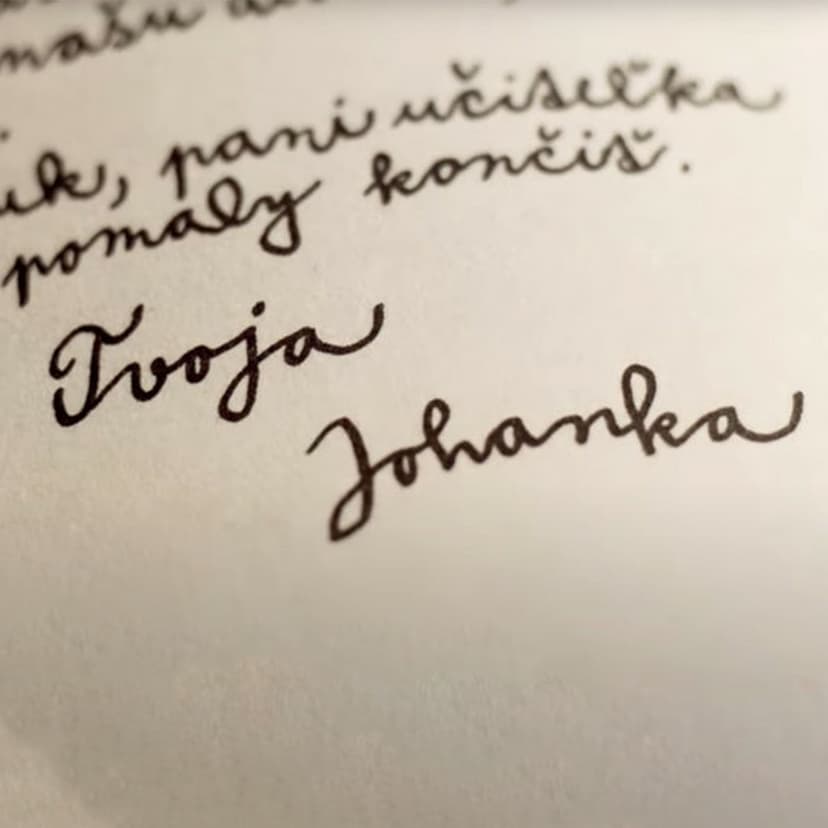 našu
, pani učiteľka
pomaly končíš.
Tvoja
Johanka